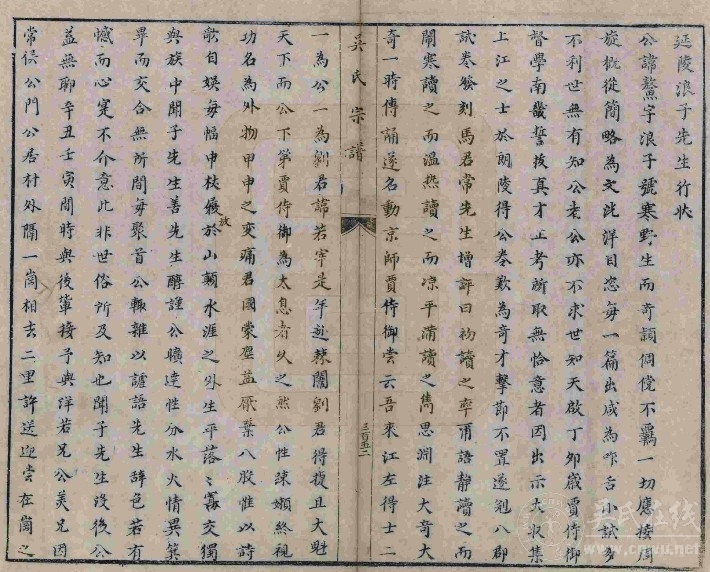 延陵浪子先生行狀
公諱鰲字浪子號寒野生而奇穎倜儻不羈一切應接周
旋概從簡略為文汪洋自恣每一篇出咸為咋舌小試多
不利世無有知公者公亦不求世知天啟丁卯歲賈侍御
督學南畿誓拔真才正考所取無恰意者因出示大收集
上江之士於朗陵得公卷歎為奇才擊節不置遂冠八郡
試卷發刻馬君常先生增評曰初讀之率爾語靜讀之而
閒寒讀之而溫熱讀之而凉平滿讀之雋思淵注大奇大
奇一時傳誦遂名動京師賈侍御嘗云吾來江左得士二
吳氏宗譜
三百五二
一為公一為劉君諱若宰是年赴棘闈劉君得援且大魁
天下而公下第賈侍御為太息者久之然公性疎嬾終視
功名為外物甲申之變痛君國蒙塵益厭棄八股惟以詩
歌自娛每幅巾杖履放於山巔水涯之外生平落落寡交獨
與族中聞子先生善先生醇謹公曠達性分水火情異箕
畢而交合無所間每聚首公輒雜以謔語先生辭色若有
憾而心寔不介意此非世俗所及知也聞子先生沒後公
益無聊辛丑壬寅間時與後輩接予與絆若兄公美兄因
常侯公門公居村外隔一崗相去二里許送迎嘗在崗之
吳氏在線
cnwu.net